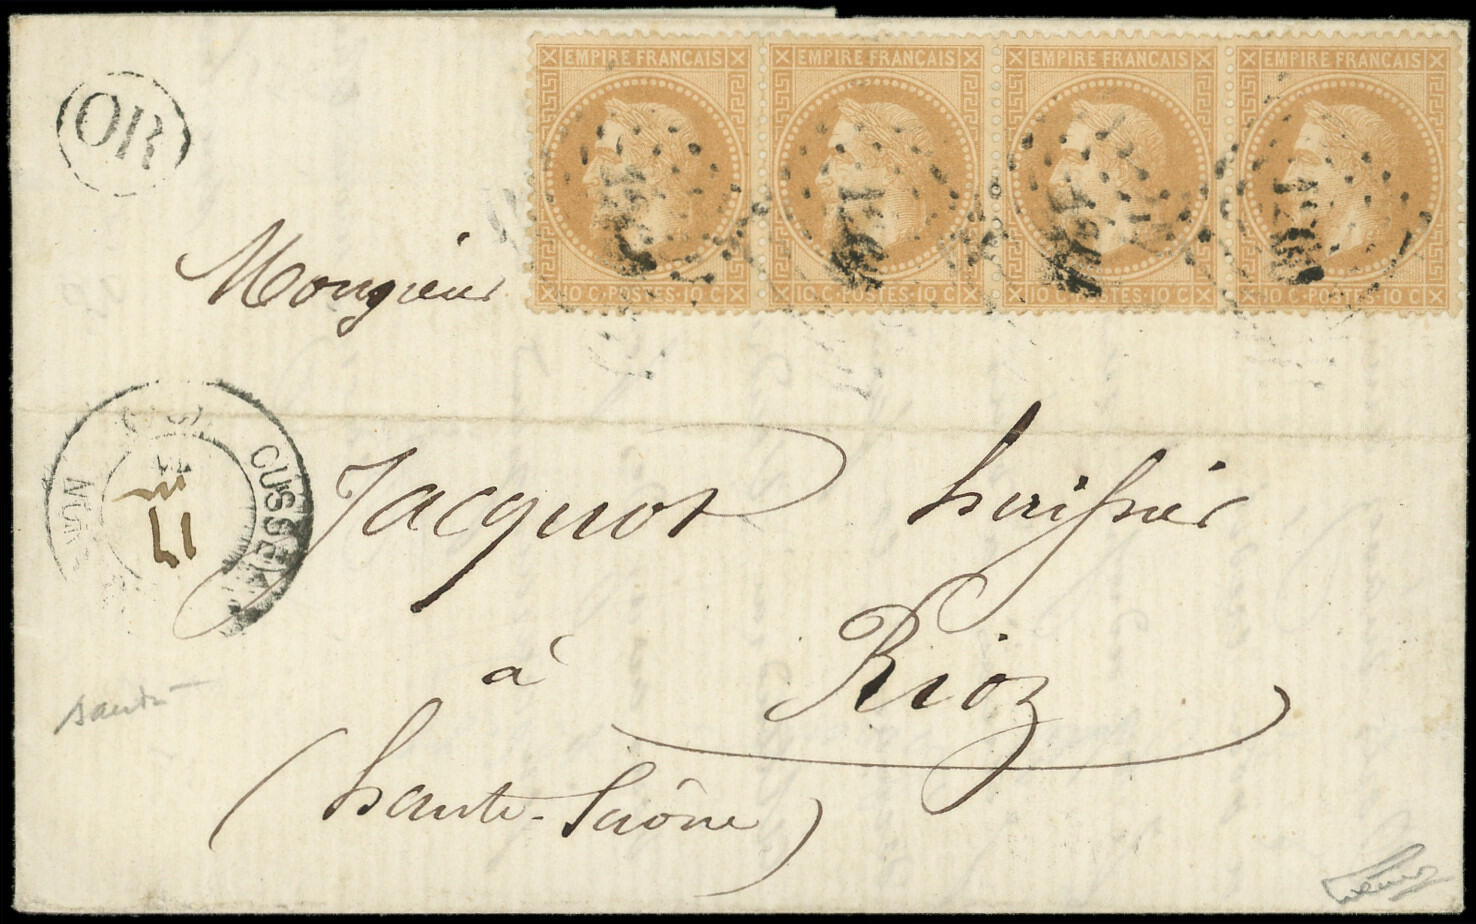 OR
EMPIRE FRANCAIS EMPIRE FRANCAIS EMPIRE FRANCAIS EMPIRE FRANCAIS
10 C·POSTES·10 C 10 C·POSTES·10 C 10 C·POSTES·10 C 10 C·POSTES·10 C
Monsieur
Jacquot huissier
à Rioz
(haute-Saône)